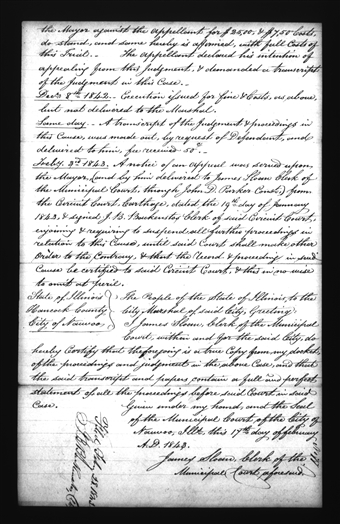 the Mayor against the Appellant for $25,00, & $7,50 Costs,
do stand, and same hereby is affirmed, with full Costs of
this Trial. - The appellant declared his intention of
appealing from this Judgment, & demanded a transcript
of the Judgment in this Case. -
Decr. 8th 1842. Execution issued for fine & Costs, as above,
but not delivered to the Marshal.
Same day - A transcript of the Judgment & proceedings in
this Cause, was made out, by request of Defendant, and
delivered to him, fee received 50c. -
Feby. 3d 1843. A notice of an appeal was served upon
the Mayor, (and by him delivered to James Sloan Clerk of
the Municipal Court, through John D. Parker Const.) from
the Circuit Court, Carthage, dated the 19th day of January
1843, & signed J. B. Backenstos Clerk of said Circuit Court,
enjoining & requiring to suspend all further proceedings in
relation to this Cause, until said Court shall make other
Order to the Contrary, & that the Record & proceeding in said
Cause be certified to said Circuit Court, & this in no wise
to omit at peril.
State of Illinois
Hancock County
City of Nauvoo,
The People of the State of Illinois, to the
City Marshal of said City, Greeting:
I James Sloan, Clerk of the Municipal
Court, within and for the said City, do
hereby Certify that the foregoing is a true Copy from my docket,
of the proceedings and judgment in the above Case, and that
the said transcript and papers contain a full and perfect
statement of all the proceedings before said Court in said
Case.
Given under my hand, and the Seal
of the Municipal Court, of the City of
Nauvoo, Ills. this 17th day of february
A.D. 1843.
James Sloan, Clerk of the
Municipal Court, aforesaid.